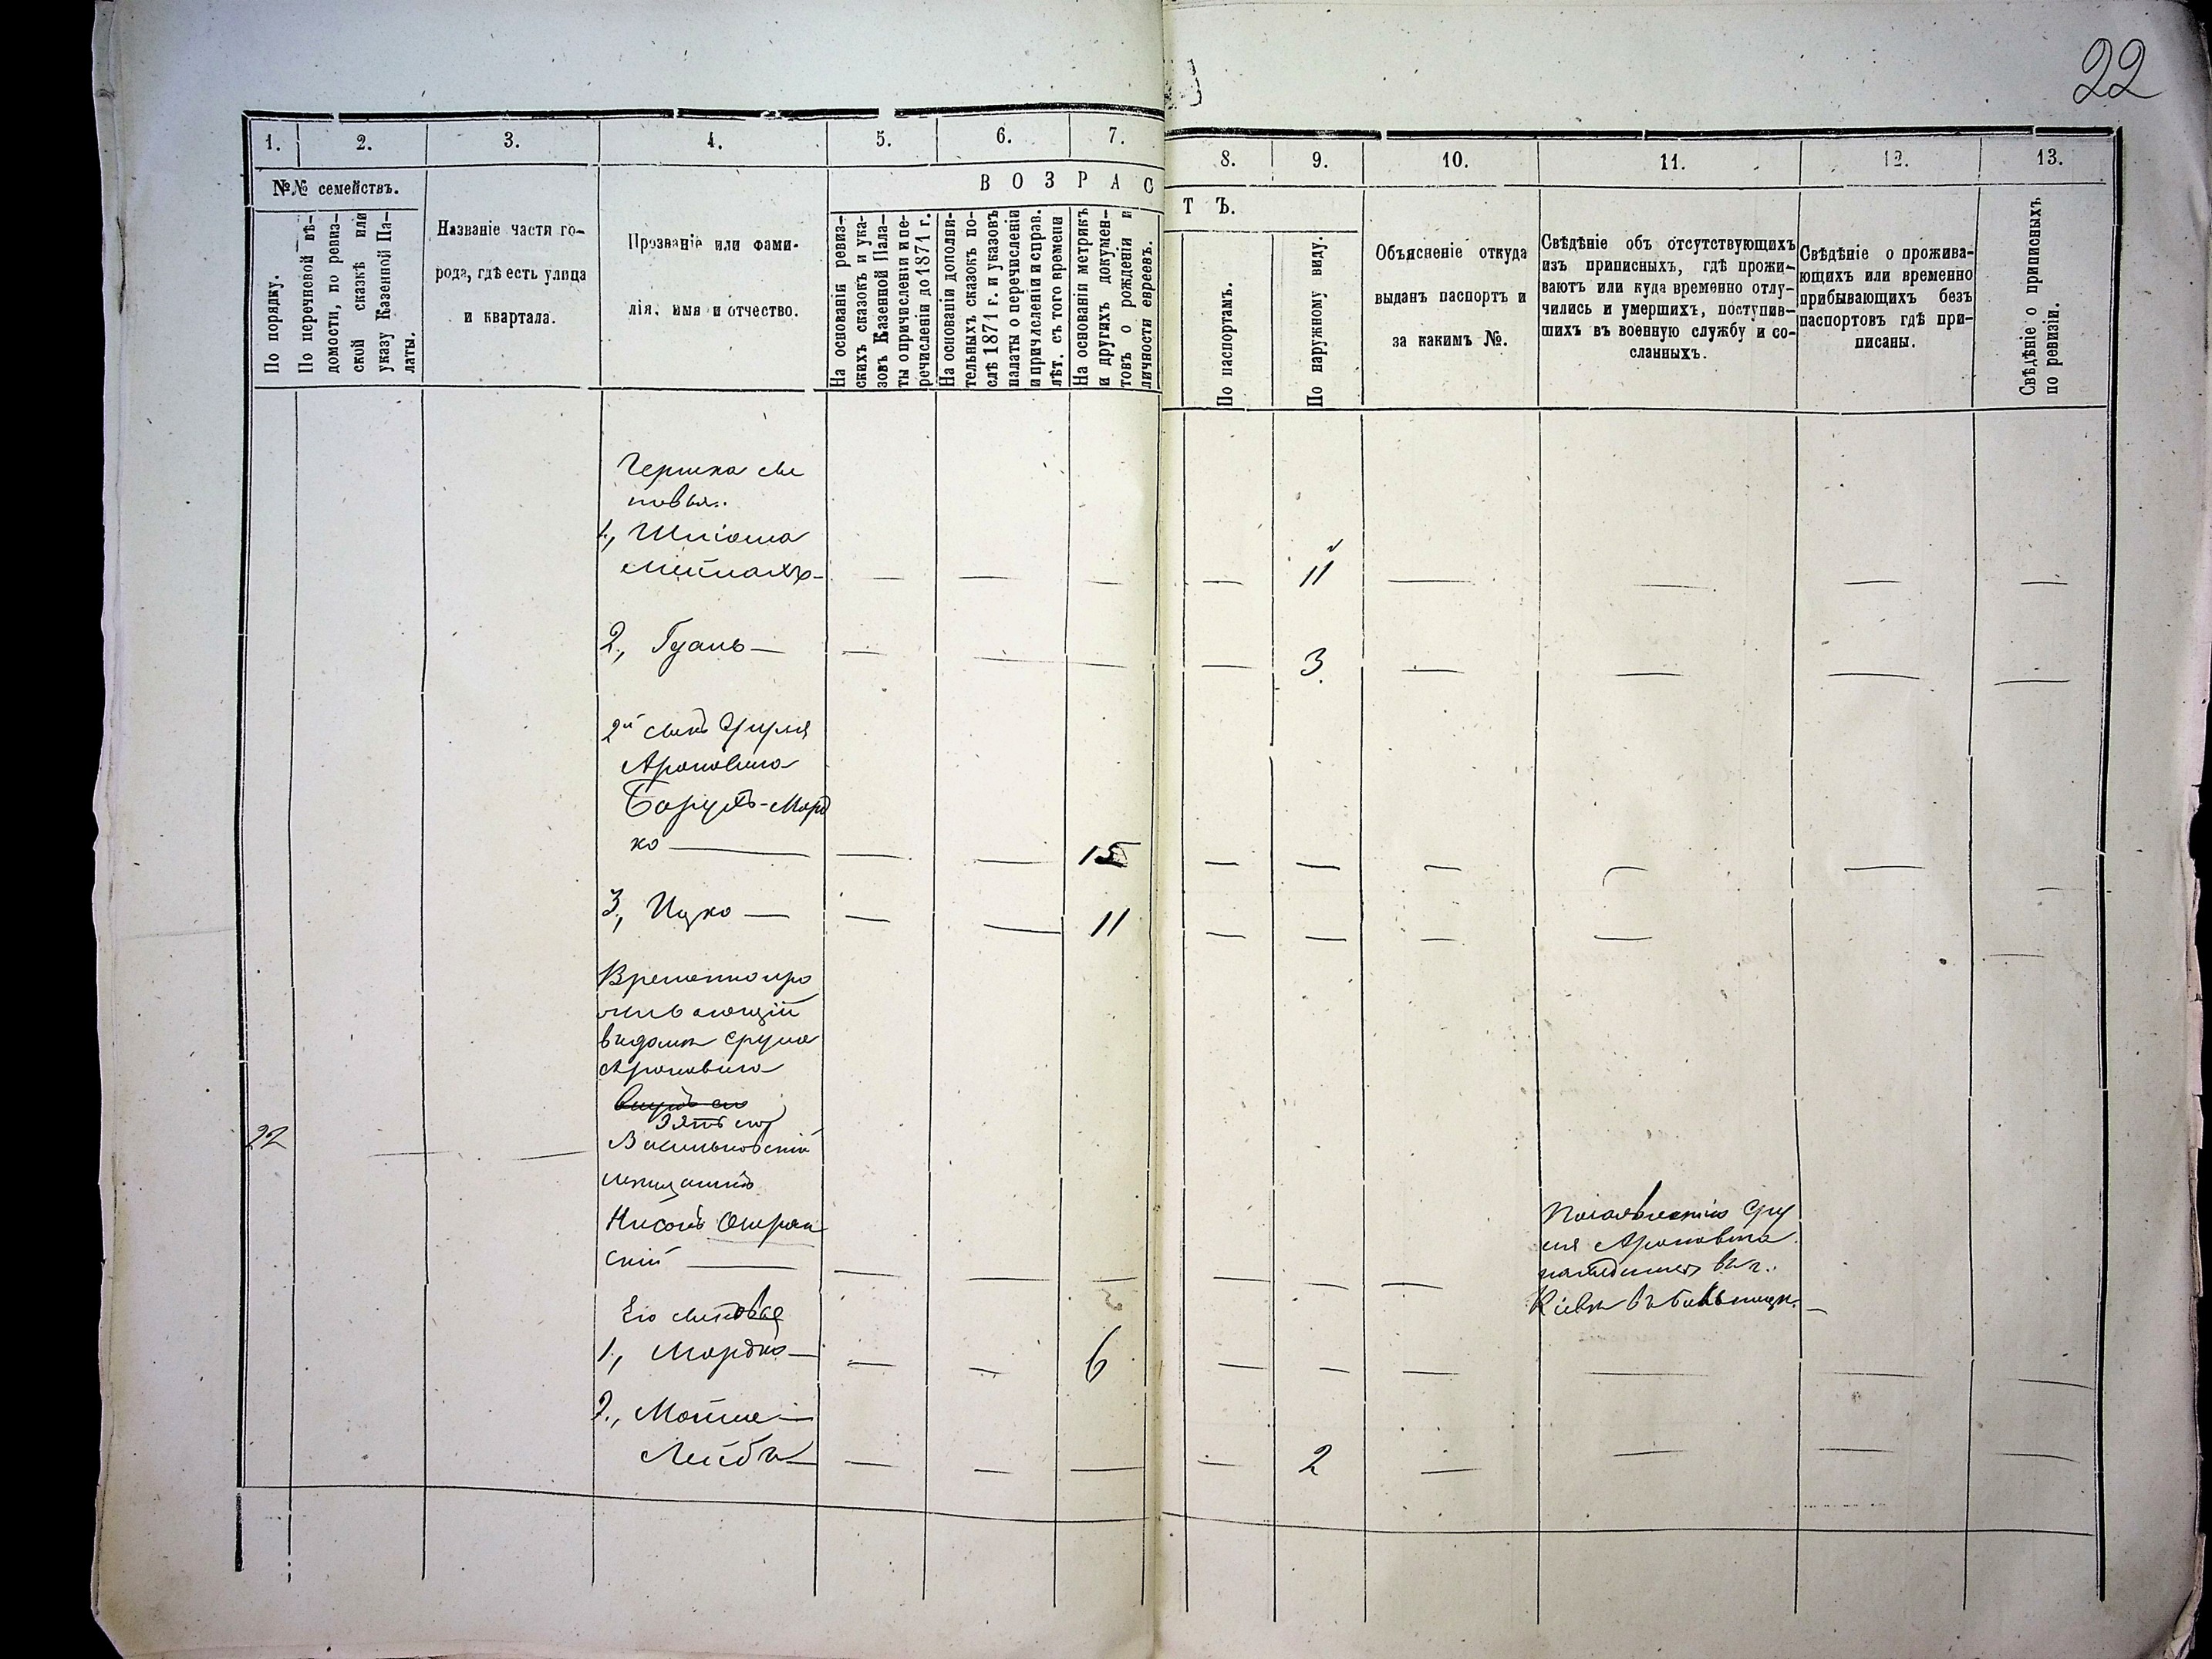 22
1.
2.
3.
4.
5.
6.
7.
8.
9.
10.
11.
12.
13.
№№ семействъ.
ВОЗРАС
ТЪ.
По порядку.
По перечневой вѣ-
домости, по ревиз-
ской сказкѣ или
указу Казенной Па-
латы.
Названіе части го-
рода, гдѣ есть улица
и квартала.
Прозваніе или фами-
лія, имя и отчество.
На основаніи ревиз-
скихъ сказокъ и ука-
зовъ Казенной Пала-
ты о причисленіи и пе-
речисленіи до 1871 г.
На основаніи дополни-
тельныхъ сказокъ по-
слѣ 1871 г. и указовъ
палаты о перечисленіи
и причисленіи и справ.
лѣт. съ того времени
На основаніи метрикъ
и другихъ докумен-
товъ о рожденіи и
личности евреевъ.
По паспортамъ.
По наружному виду.
Объясненіе откуда
выданъ паспортъ и
за какимъ №.
Свѣдѣніе объ отсутствующихъ
изъ приписныхъ, гдѣ прожи-
ваютъ или куда временно отлу-
чились и умершихъ, поступив-
шихъ въ военную службу и со-
сланныхъ.
Свѣдѣніе о прожива-
ющихъ или временно
прибывающихъ безъ
паспортовъ гдѣ при-
писаны.
Свѣдѣніе о приписныхъ
по ревизіи.
Гершка сы
новья.
1, Шлiома
Меилахъ — — — — — 11 — — — —
2, Гуань — — — — — 3 — — — —
2й сынъ Сруля
Ароновича
Борухъ-Морд
ко — — — 15 — — — — —
3, Ицко — — — 11 — — — — —
Временно про
живающій
въ домѣ Сруля
Ароновича
Зять его
22 — — Васильковскій
мѣщанинъ
Нисонъ
скій — — — — — — —
По заявленію Сру
ля Ароновича
въ г.
Кіевѣ въ больницѣ —
Его сыновья
1, Мордко — — — 6 — — — — — —
2, Мотие —
Лейбъ — — — — — 2 — — — —